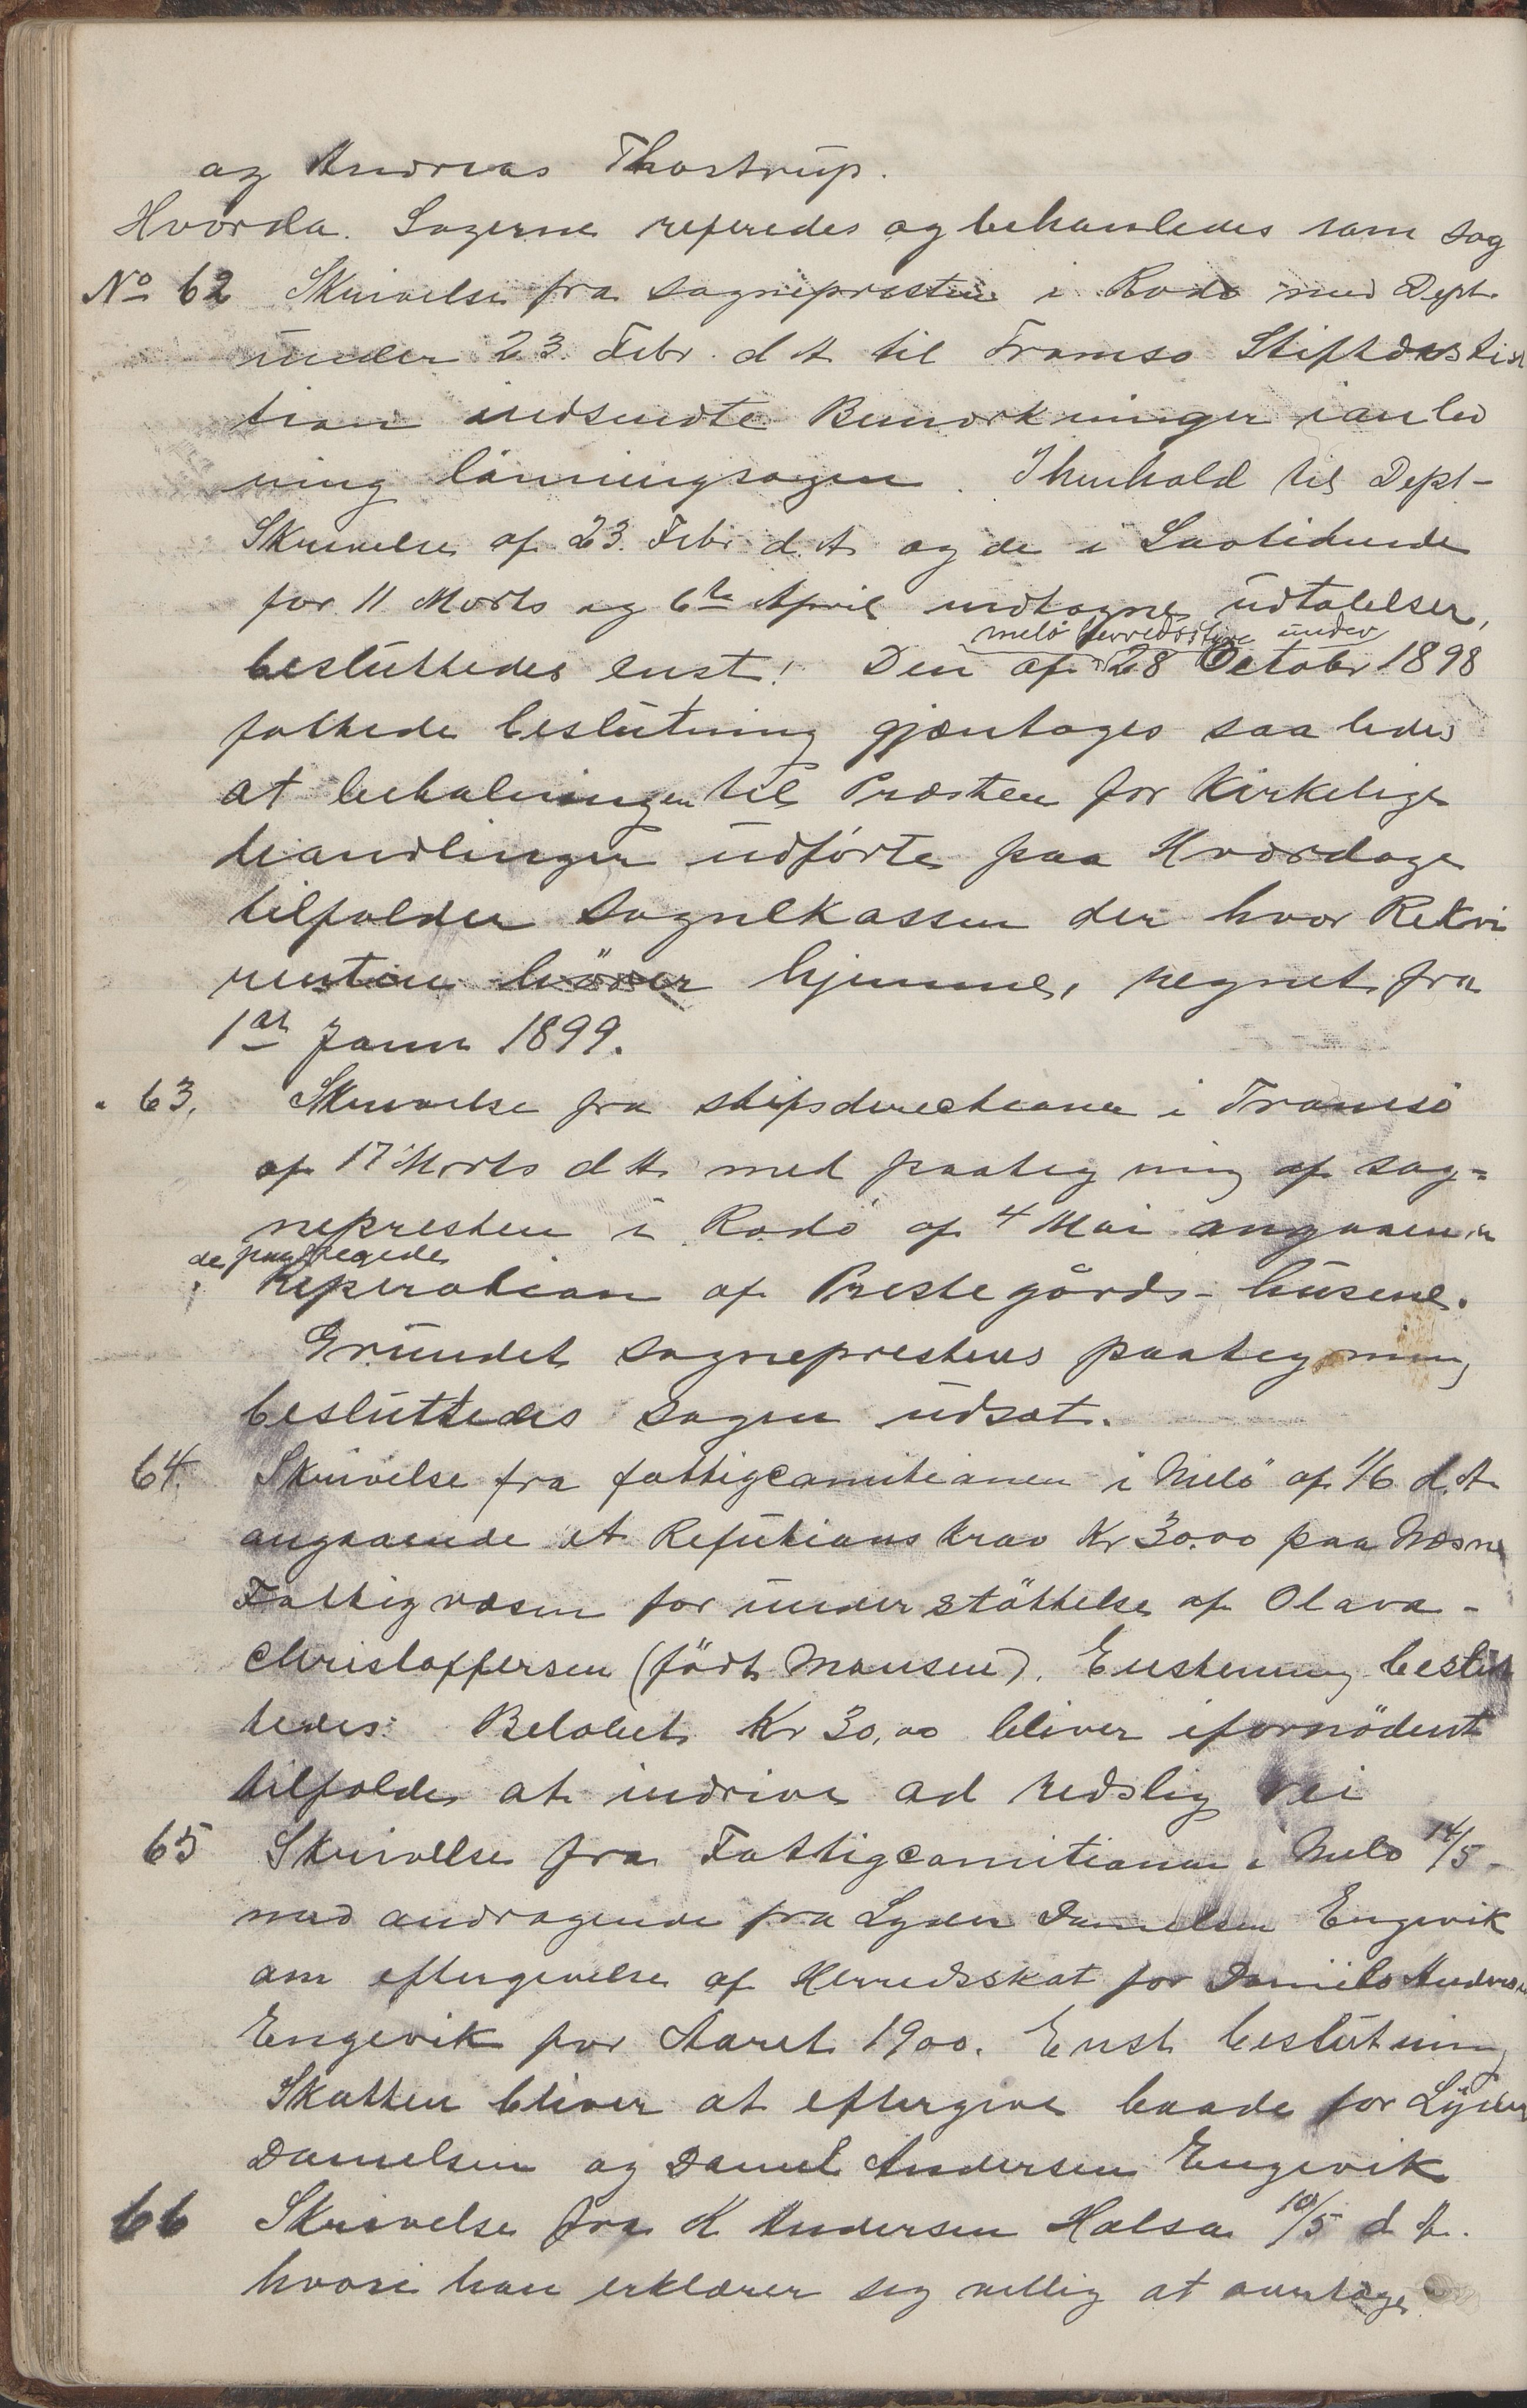 og Andreas Thostrup.
Hvorda. Sagerne referedes og behandledes som sag
No 62 Skrivelse fra sognepresten i Rodö med Dept.
under 23. Febr. d A til Tromsö Stiftdirek
tion indsendte Bemærkninger ianled
ning lönningsagen. I henhold til Dept-
Skrivelse af 23. Febr d. A og de i Lovtidende
for 11 Marts og 6te April indtagne udtalelser,
besluttedes enst! Den af melö herredsstyre under 28 October 1898
fattede beslutning gjæntages saaledes
at betalningen til Præsten for Kirkelige
handlinger udförte paa Hverdage
tilfalder Sognekassen der hvor Rekvi
renten hörer hjemme, regnet fra
1ar Janu 1899.
" 63. Skrivelse fra stifsdirectionen i Tromsö
af 17 Marts d A med paategning af sog=
nepresten i Rodö af 4 Mai angaaen
de
Reperation af Prestegårds-husene.
Grundet sogneprestens paategning
besluttedes sagen udsat.
64. Skrivelse fra fattigcomitionen i Melö af 1/6 d. A
angaaende et Refutionskrav Kr 30.00 paa Næsne
Fattigvæsen for understöttelse af Olava-
Christoffersen (födt Monsen). Enstemmig beslut
tedes: Belöbet Kr 30,00 bliver ifornödent
tilfælde at inddrive ad redslig vei
65 Skrivelse fra Fattigcomitionen i Melö 14/5-
med andragende fra Lyder Danielsen Engevik
om eftergivelse af Herredsskat for Daniels Andersen
Engevik for Aaret 1900. Enst beslutning
Skatten bliver at eftergive baade for Lyder
Danielsen og Daniel Andersen Engevik
66 Skrivelse fra K Andersen Halsa 10/5 d A.
hvori han erklærer sig villig at overtage